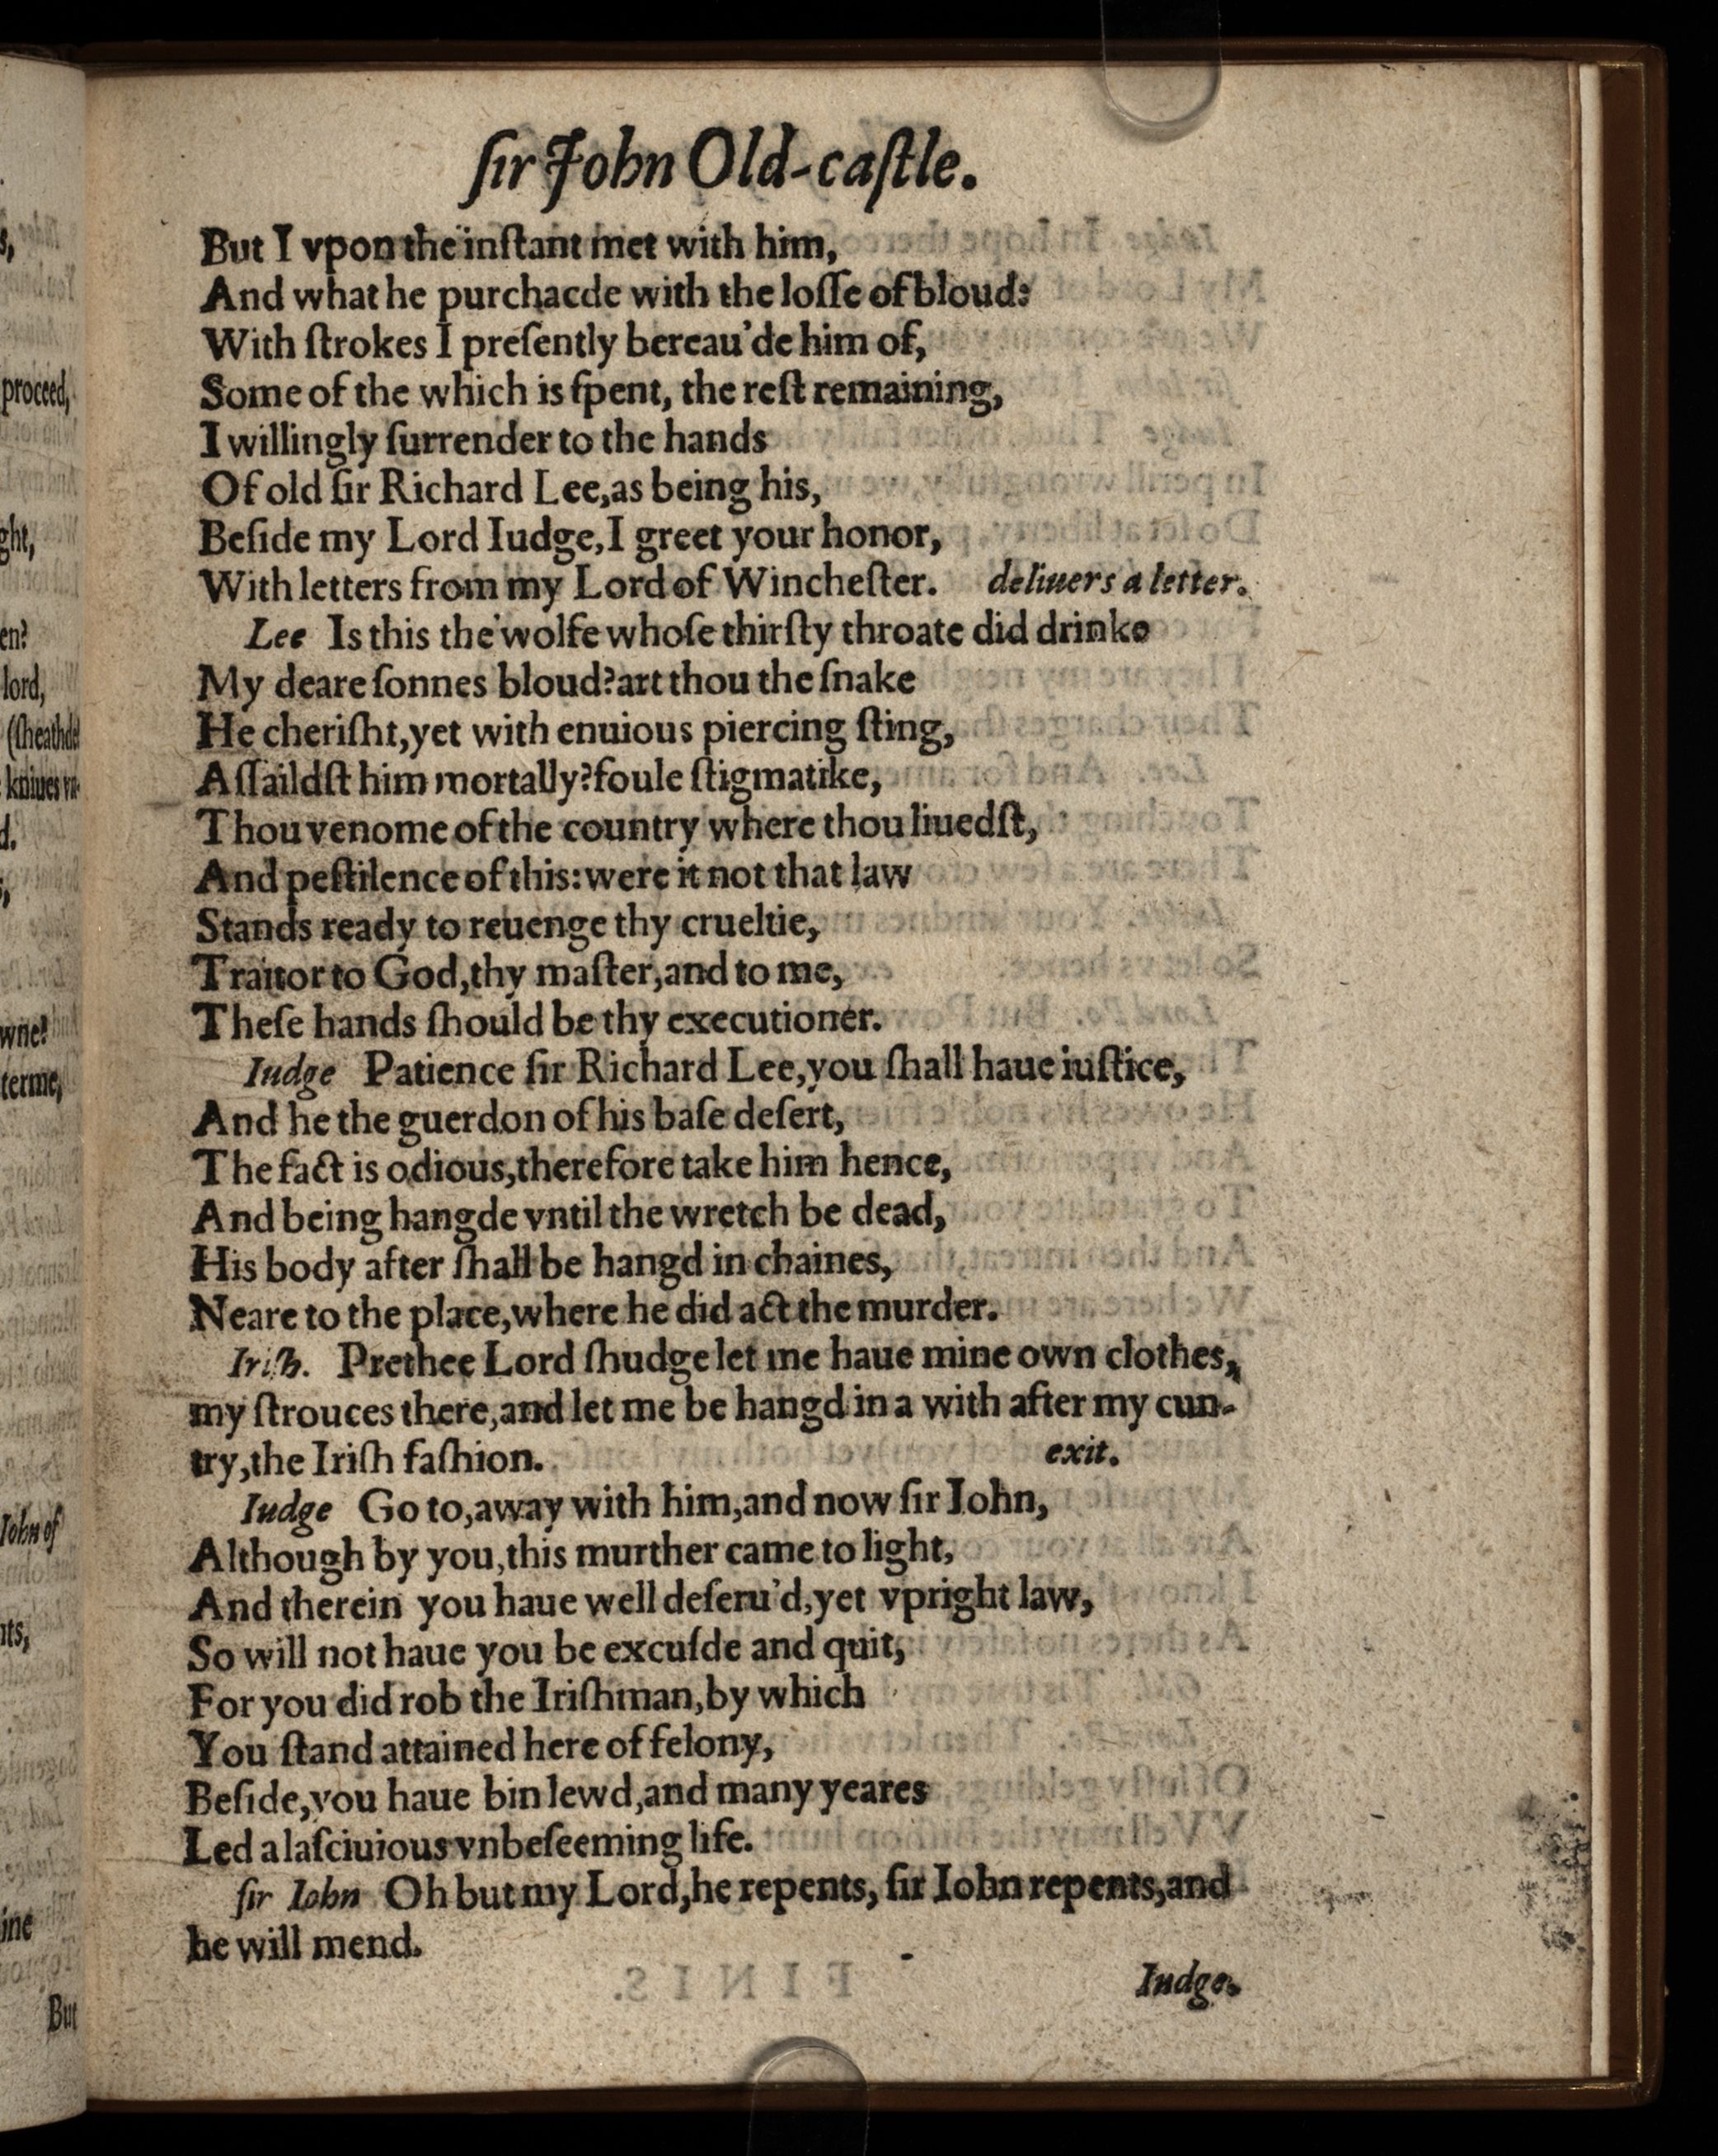 ſir John Old-caſtle.
But I vpon the inſtant met with him,
And what he purchacde with the loſſe of bloud:
With ſtrokes I preſently bereau'de him of,
Some of the which is ſpent, the reſt remaining,
I willingly ſurrender to the hands
Of old ſir Richard Lee,as being his,
Beſide my Lord Iudge,I greet your honor,
With letters from my Lord of Wincheſter. deliuers a letter.
Lee Is this the wolfe whoſe thirſty throate did drinke
My deare ſonnes bloud?art thou the ſnake
He cheriſht,yet with enuious piercing ſting,
Aſſaildſt him mortally?foule ſtigmatike,
Thou venome of the country where thou liuedſt,
And peſtilence of this:were it not that law
Stands ready to reuenge thy crueltie,
Traitor to God,thy maſter,and to me,
Theſe hands ſhould be thy executioner.
Iudge Patience ſir Richard Lee,you ſhall haue iuſtice,
And he the guerdon of his baſe deſert,
The fact is odious,therefore take him hence,
And being hangde vntil the wretch be dead,
His body after ſhall be hangd in chaines,
Neare to the place,where he did act the murder.
Iriſh. Prethee Lord ſhudge let me haue mine own clothes,
my ſtrouces there,and let me be hangd in a with after my cun-
try,the Iriſh faſhion. exit.
Iudge Go to,away with him,and now ſir Iohn,
Although by you,this murther came to light,
And therein you haue well deſeru'd,yet vpright law,
So will not haue you be excuſde and quit,
For you did rob the Iriſhman,by which
You ſtand attained here of felony,
Beſide,you haue bin lewd,and many yeares
Led a laſciuious vnbeſeeming life.
ſir Iohn Oh but my Lord,he repents, ſir Iohn repents,and
he will mend.
Iudge.
proceed,
ght,
en?
lord,
(ſheathde
kniues vn-
d.
wne!
terme,
Iohn of
nts,
ine
But